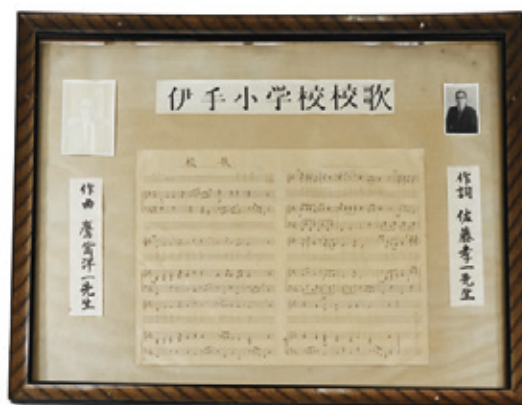 伊手小学校校歌
校歌
作詞 佐藤孝一先生
作曲 鷹觜洋一先生